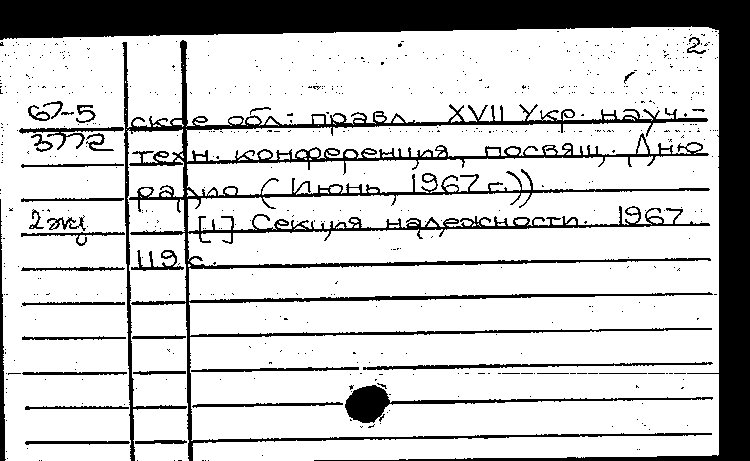 2
67-5
3772
ское обл. правл. XVII Укр. науч.-
техн. конференция, посвящ. Дню
радио (Июнь, 1967 г.))
2 экз
[1] Секция надежности. 1967.
119 с.